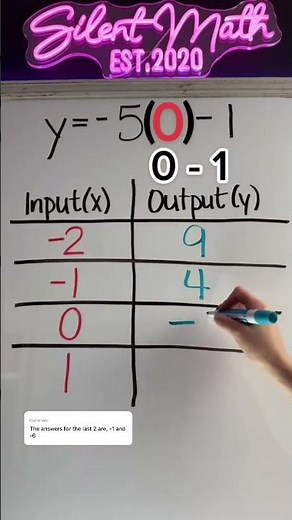 Silent Math
EST.2020
y=-5(0)-1
0 - 1
Input(x) Output(y)
-2 9
-1 4
0 -
1
The answers for the last 2 are, -1 and
-6